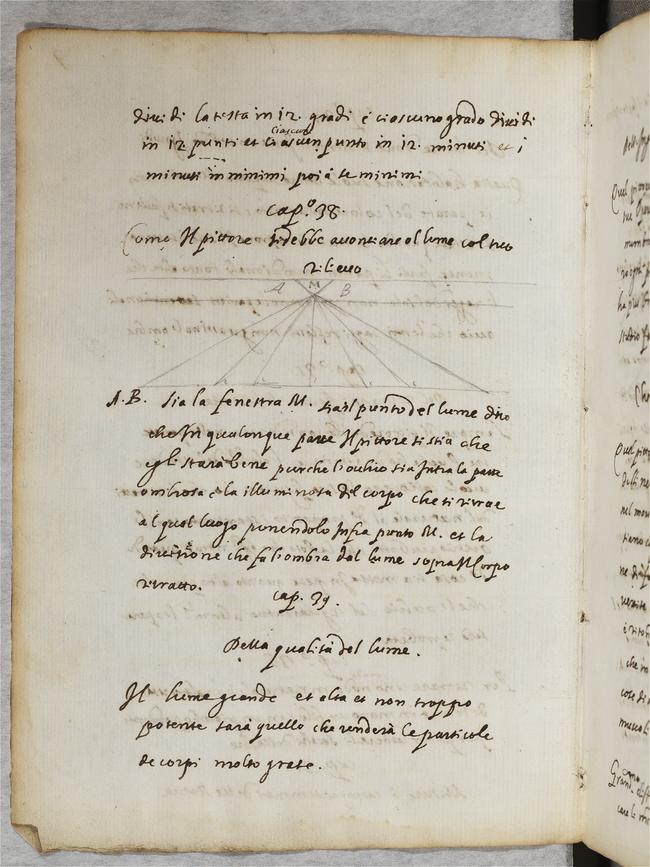 dividi la testa in 12. gradi e ciascuno grado dividi
in 12 punti et ciascun punto in 12. minuti et i
minuti in minimi poi i se minimi
cap.º 38.
Come Il pittore si debbe acconciare al lume col suo
rilievo
A M B
A. B. sia la fenestra M. sia il punto del lume dico
che In qualonque parte Il pittore si stia che
egli starà bene purche l'ochio sia Intra la parte
ombrosa e la illuminosa del corpo che si ritrae
al qual luogo ponendolo Infra ponto M. et la
divisione che fa l'ombra dal lume sopra Il Corpo
ritratto.
cap. 39.
Della qualità del lume.
Il lume grande et alto et non troppo
potente sarà quello che renderà le particole
de corpi molto grate.